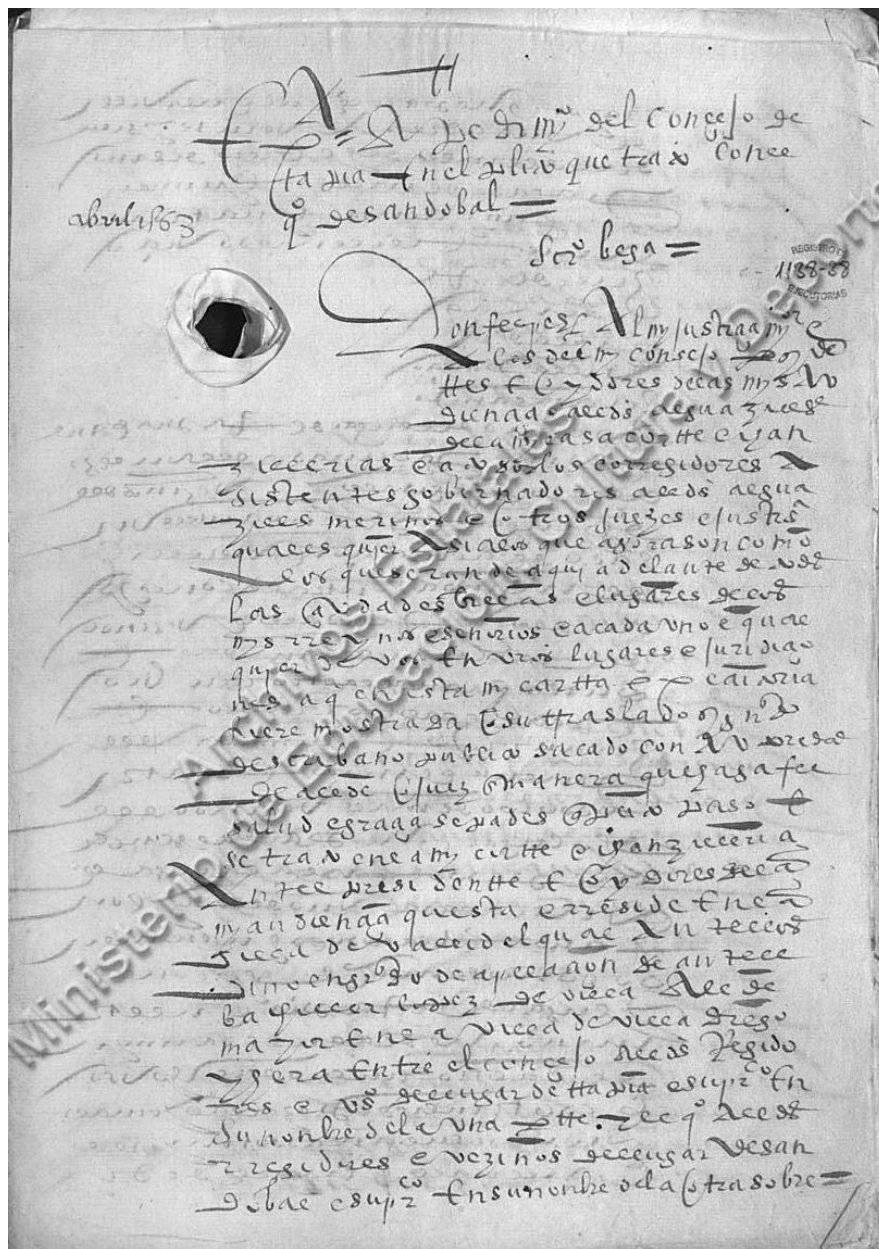 A pedimyº del conçejo de
tapia en el pleito que trato conce
qº de sandobal =
abril 1563
scrº bega =
REGISTRO DE
1138-38
EJECUTORIAS
Don felipe Al my justiçia mor e
A los del my consejo presy de
ttes E oydores de las mys Au
diençias alcds alguaziles
de la my casa cortte e chan
zillerias e a todos los corregidores A
sistentes gobernadores alcds algua
ziles merinos e otros juezes e justiªs
qualesquier Asi a los que agora son como
A los que seran de aqui adelante de todas
las çiudades billas e lugares de los
mys rreynos e señorios e a cada uno e qual
quier de vos En vros lugares e juridiçio
nes a qen esta my cartta executoria
fuere mostrada O su ttraslado signado
de escribano publico sacado con Autoridad
de alcde O juez en manera que haga fee
salud e graçia sepades que pleito paso E
se trato en la my cortte e chanzilleria
Ante el presidentte E Oydores de la
my audiençia questa e rreside En la
villa de vallid el qual Ante ellos
vino en grado de apelaçion de ante el
bachiller lopez de villa Alcde
mayor En la villa de villa diego
y hera Entre el conçejo Alcds Regido
res e vºs del lugar de ttapia e su prºr En
su nonbre de la una ptte y el qº Alcds
rregidores e vezinos del lugar de san
dobal e su prºr En su nonbre de la Otra sobre =
Ministerio de Educación, Cultura y Deporte
Archivos Estatales